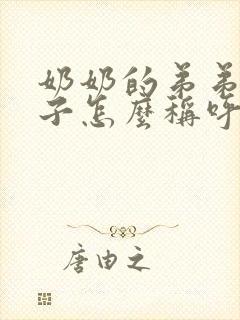 奶奶的弟弟
子怎麼稱呼
唐由之